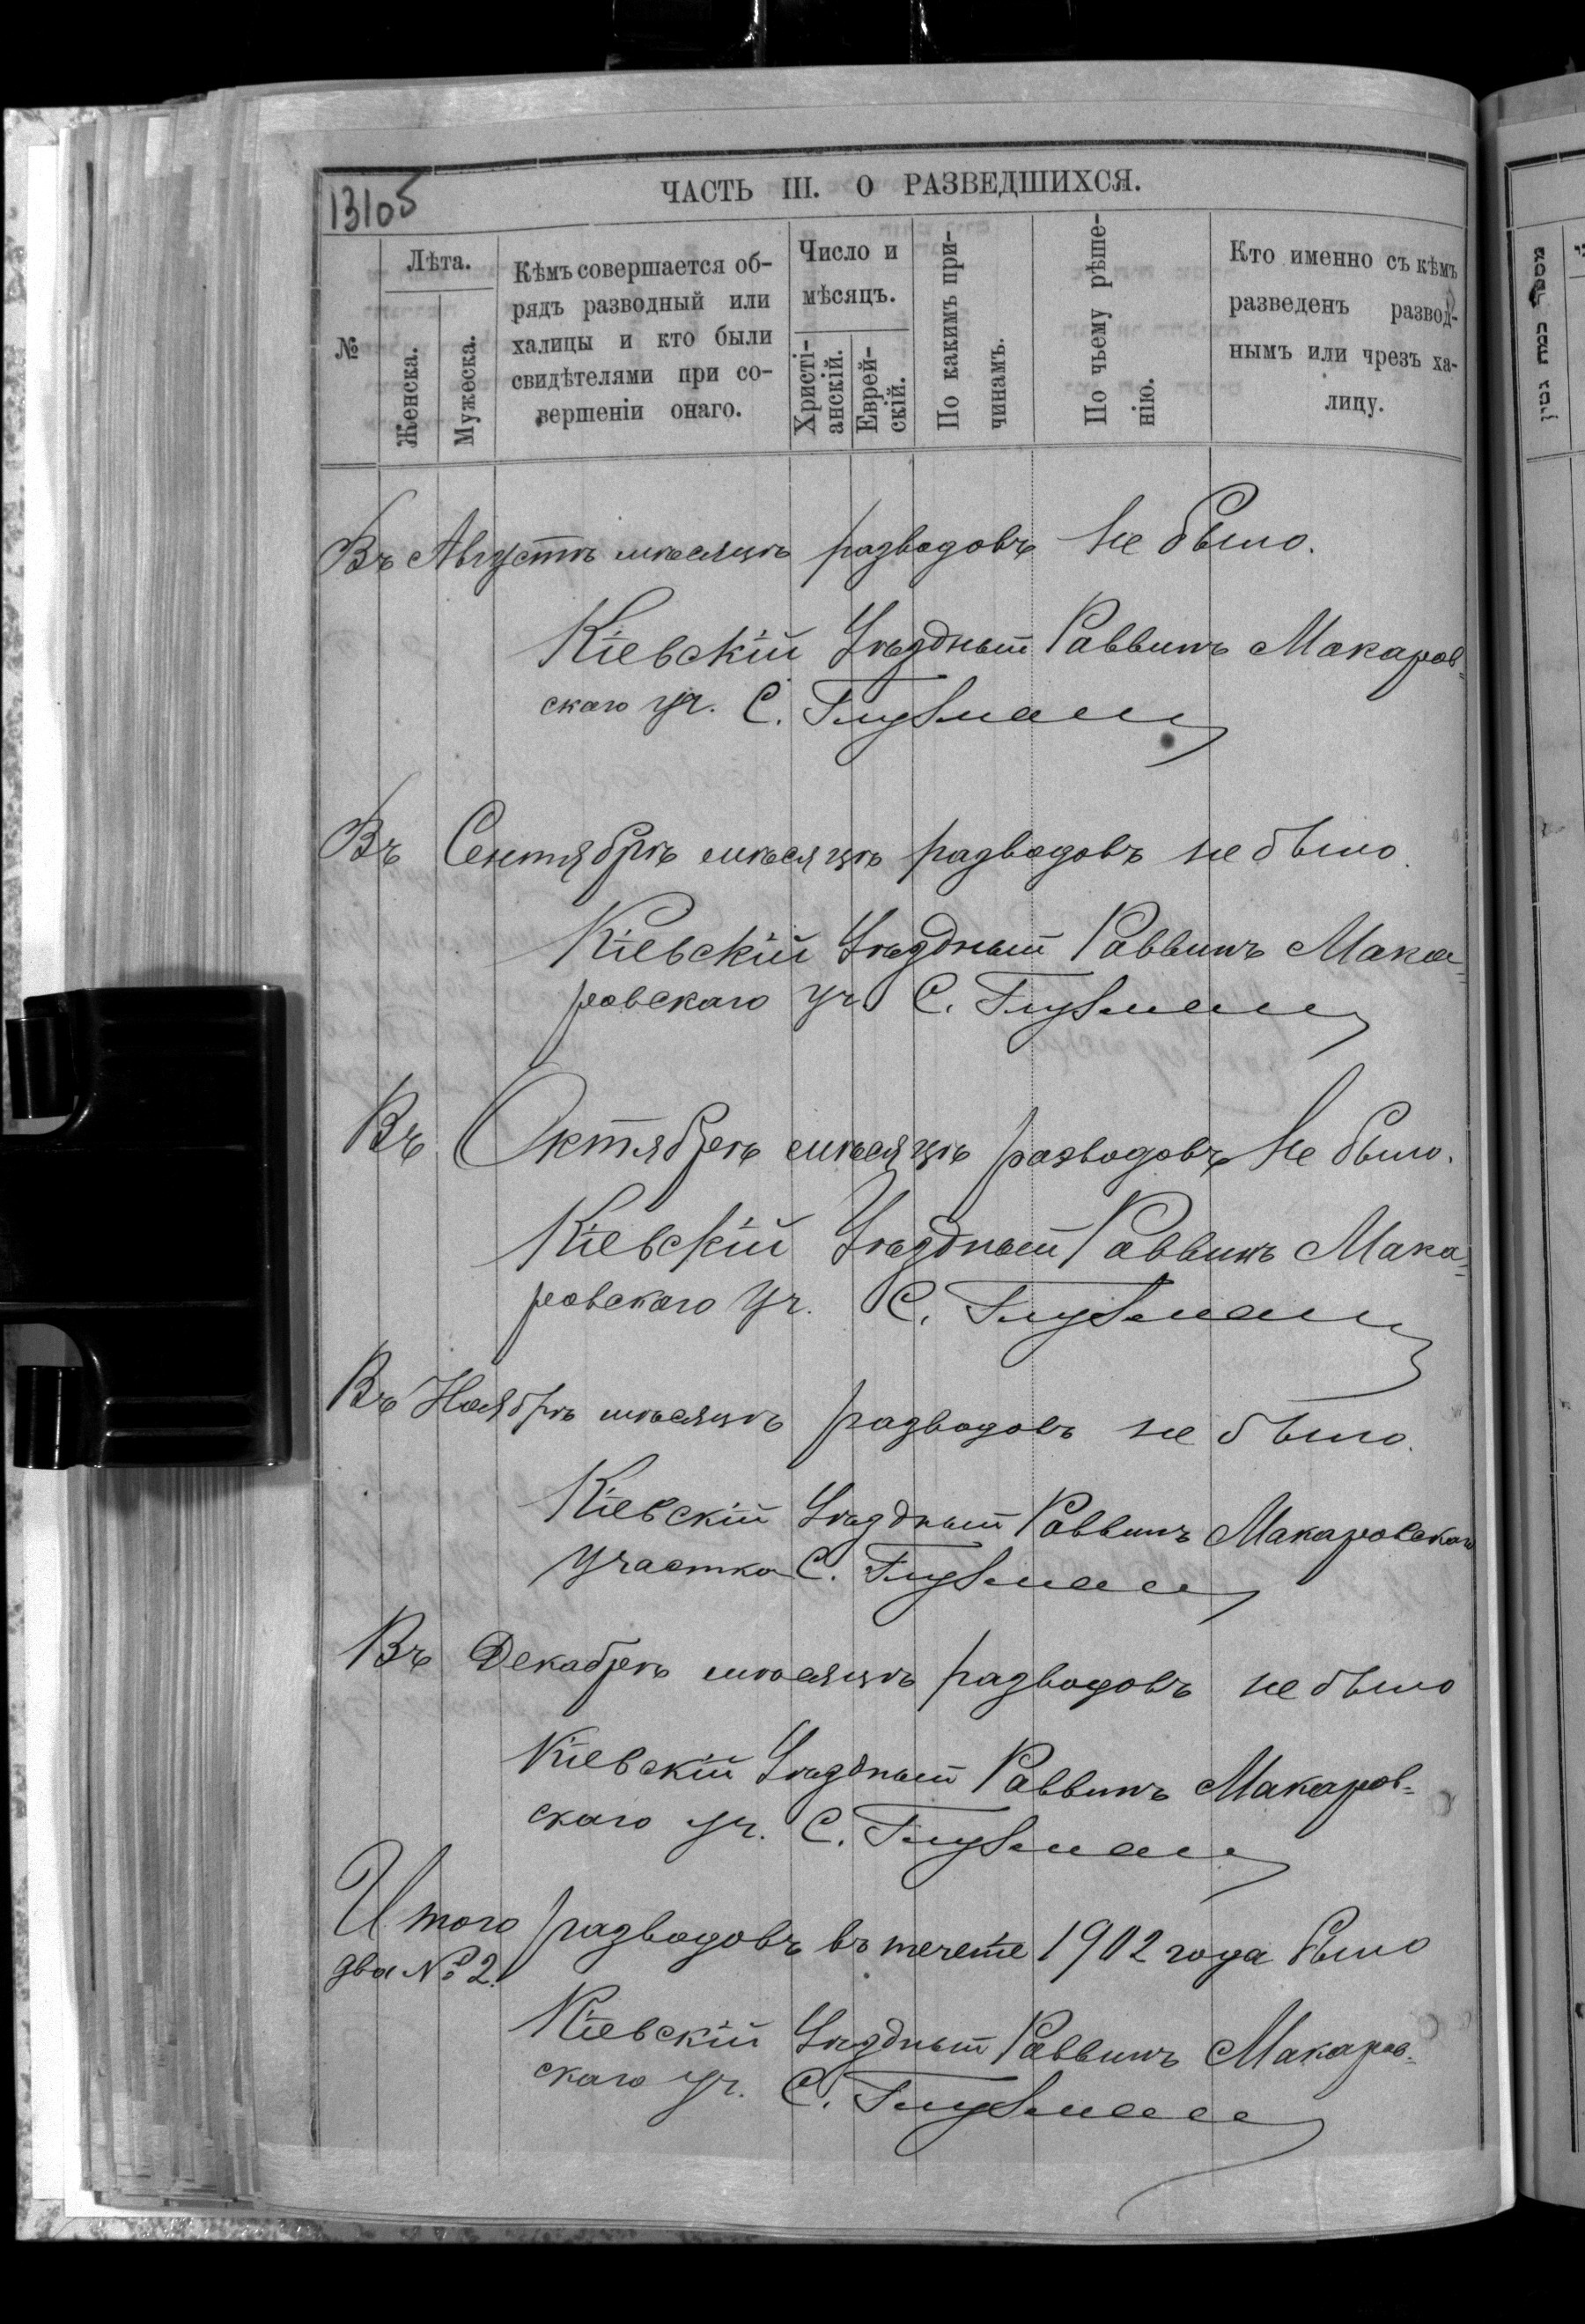 13105
ЧАСТЬ III. О РАЗВЕДШИХСЯ.
№
Лѣта.
Женска.
Мужеска.
Кѣмъ совершается об-
рядъ разводный или
халицы и кто были
свидѣтелями при со-
вершеніи онаго.
Число и
мѣсяцъ.
Христі-
анскій.
Еврей-
скій.
По какимъ при-
чинамъ.
По чьему рѣше-
нію.
Кто именно съ кѣмъ
разведенъ развод-
нымъ или чрезъ ха-
лицу.
Въ Августѣ мѣсяцѣ разводовъ не было.
Кіевскій Уѣздный Раввинъ Макаров-
скаго уч. С. Глузман
Въ Сентябрѣ мѣсяцѣ разводовъ не было.
Кіевскій Уѣздный Раввинъ Мака-
ровскаго уч С. Глузман
Въ Октябрѣ мѣсяцѣ разводовъ не было.
Кіевскій Уѣздный Раввинъ Мака-
ровскаго Уч. С. Глузман
Въ Ноябрѣ мѣсяцѣ разводовъ не было.
Кіевскій Уѣздный Раввинъ Макаровскаго
участка С. Глузман
Въ Декабрѣ мѣсяцѣ разводовъ не было
Кіевскій Уѣздный Раввинъ Макаров-
скаго уч. С. Глузман
Итого разводовъ въ течете 1902 года было
два № 2.
Кіевскій Уѣздный Раввинъ Макаров-
скаго уч. С. Глузман